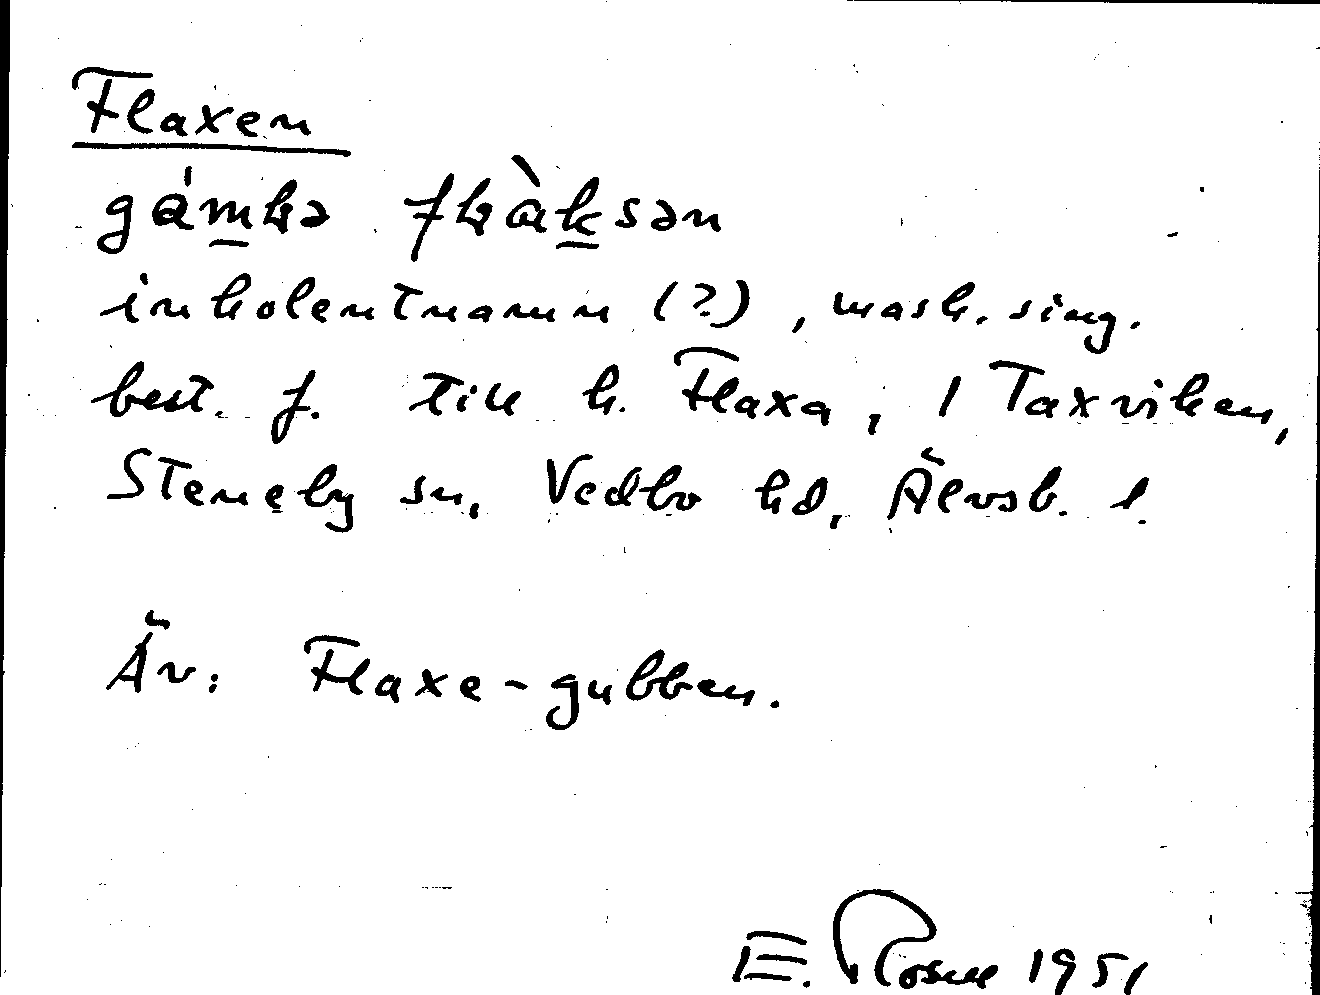 Flaxen
gámḷə fḷàksən
inkolentnamn (?), mask. sing.
best. f. till h. Flaxa, 1 Taxviken,
Steneby sn, Vedbo hd, Älvsb. l.
Äv: Flaxe-gubben.
E. 1951